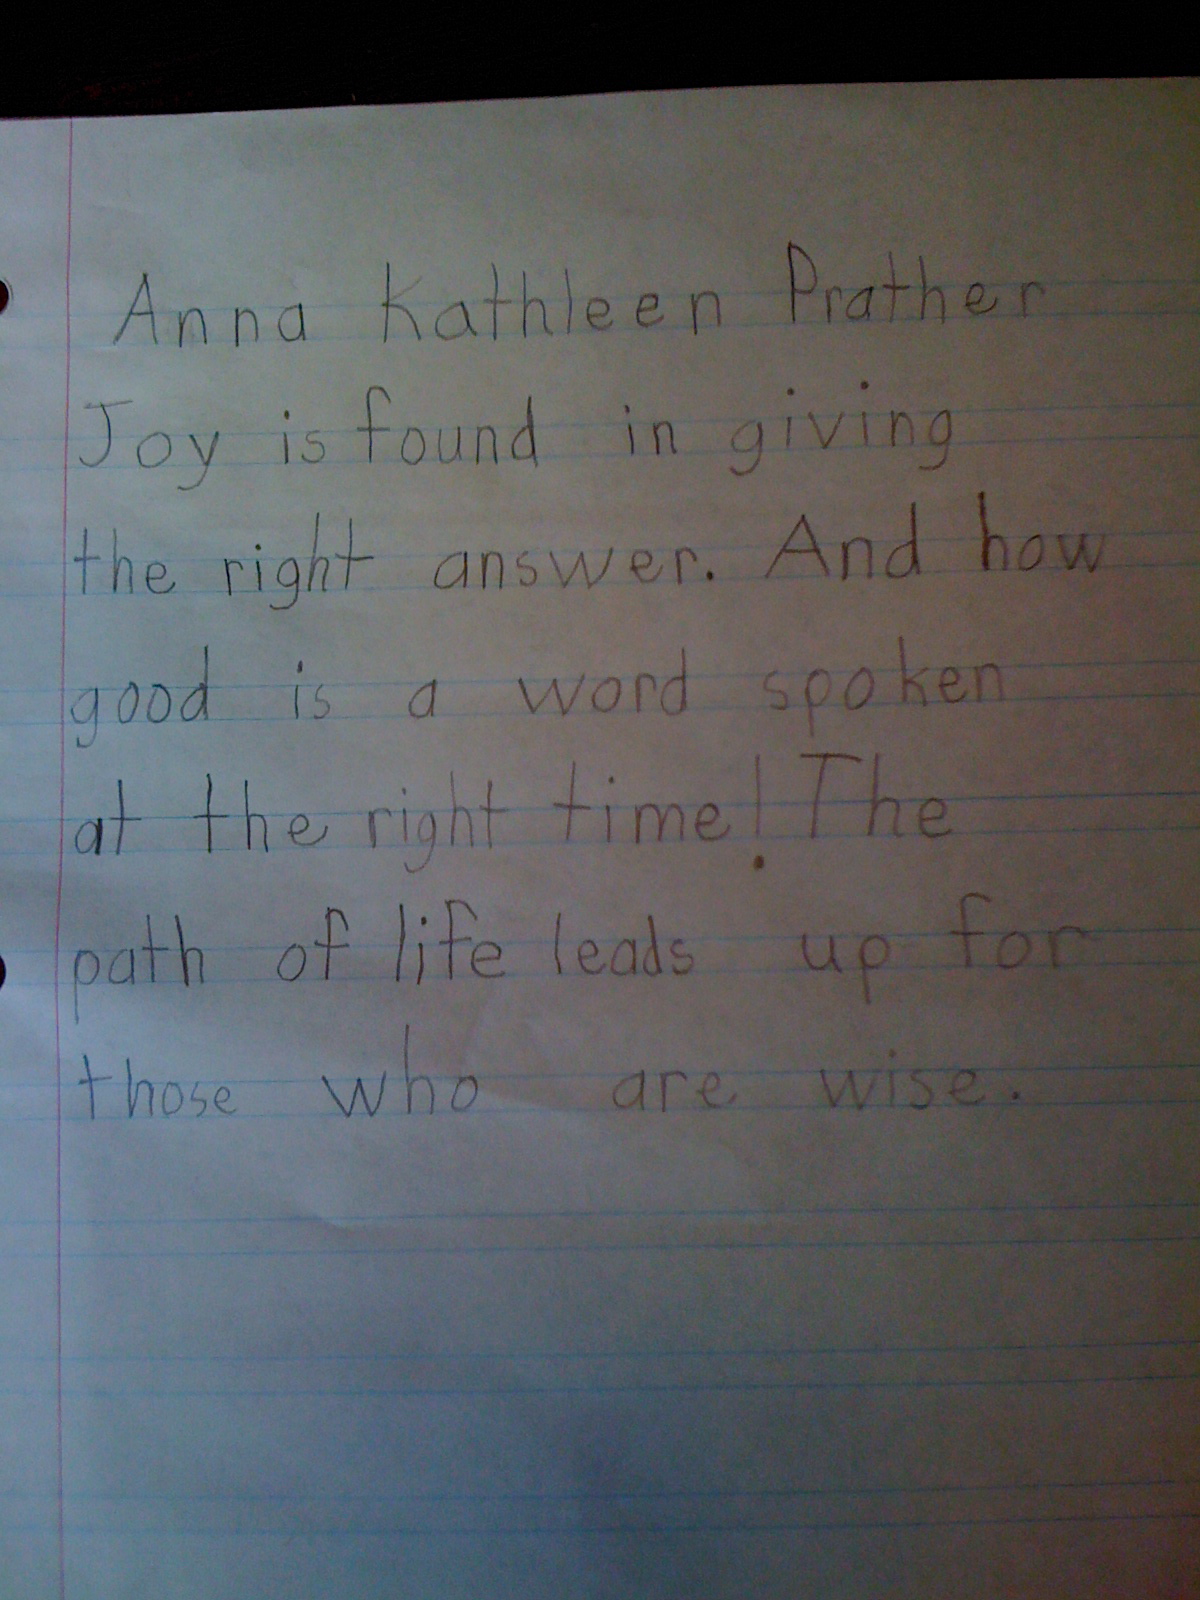 Anna Kathleen Prather
Joy is found in giving
the right answer. And how
good is a word spoken
at the right time! The
path of life leads up for
those who are wise.